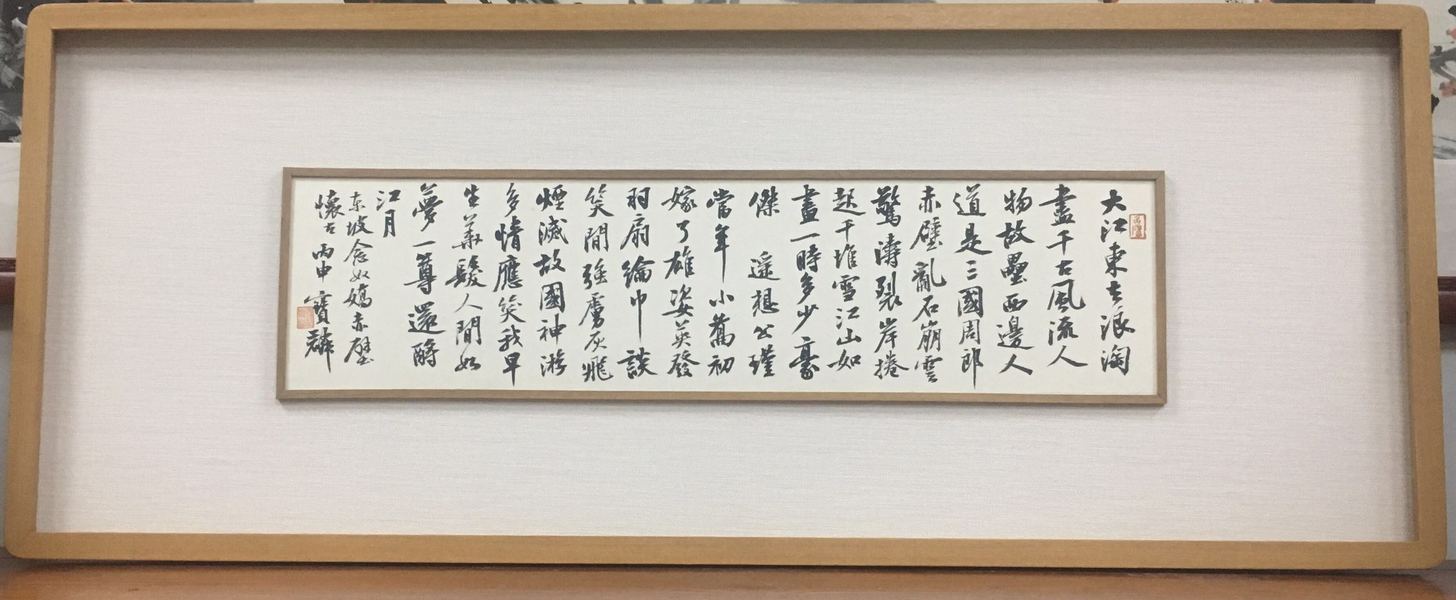 大江東去浪淘
盡千古風流人
物故壘西邊人
道是三國周郎
赤壁亂石崩雲
驚濤裂岸捲
起千堆雪江山如
畫一時多少豪
傑 遥想公瑾
當年小喬初
嫁了雄姿英發
羽扇綸巾談
笑間強虜灰飛
煙滅故國神游
多情應笑我早
生華髮人間如
夢一尊還酹
江月
东坡念奴嬌赤壁
懷古 丙申 寶麟